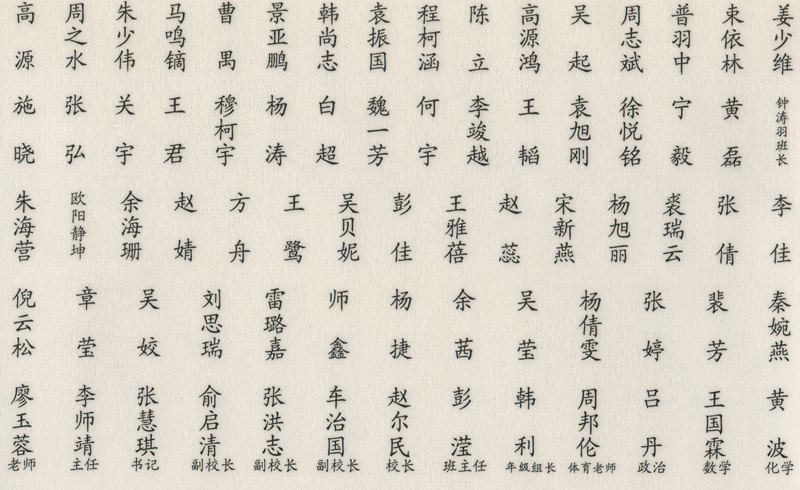 高源 周之水 朱少伟 马鸣镝 曹禺 景亚鹏 韩尚志 袁振国 程柯涵 陈立 高源鸿 吴起 周志斌 普羽中 束依林 姜少维
施晓 张弘 关宇 王君 穆柯宇 杨涛 白超 魏一芳 何宇 李竣越 王韬 袁旭刚 徐悦铭 宁毅 黄磊 钟涛羽班长
朱海营 欧阳静坤 余海珊 赵婧 方舟 王鹭 吴贝妮 彭佳 王雅蓓 赵蕊 宋新燕 杨旭丽 裘瑞云 张倩 李佳
倪云松 章莹 吴姣 刘思瑞 雷璐嘉 师鑫 杨捷 余茜 吴莹 杨倩雯 张婷 裴芳 秦婉燕
廖玉蓉 李师靖 张慧琪 俞启清 张洪志 车治国 赵尔民 彭滢 韩利 周邦伦 吕丹 王国霖 黄波
老师 主任 书记 副校长 副校长 副校长 校长 班主任 年级组长 体育老师 政治 数学 化学